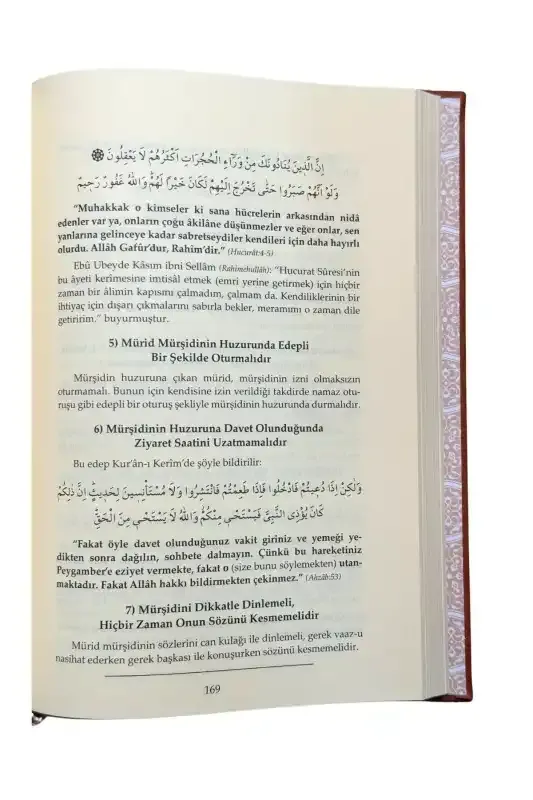 اِنَّ الَّذٖينَ يُنَادُونَكَ مِنْ وَرَٓاءِ الْحُجُرَاتِ اَكْثَرُهُمْ لَا يَعْقِلُونَ ۞
وَلَوْ اَنَّهُمْ صَبَرُوا حَتّٰى تَخْرُجَ اِلَيْهِمْ لَكَانَ خَيْرًا لَهُمْ وَاللّٰهُ غَفُورٌ رَحٖيمٌ
"Muhakkak o kimseler ki sana hücrelerin arkasından nidâ
edenler var ya, onların çoğu âkilâne düşünmezler ve eğer onlar, sen
yanlarına gelinceye kadar sabretseydiler kendileri için daha hayırlı
olurdu. Allâh Gafûr'dur, Rahîm'dir." (Hucurât:4-5)
Ebû Ubeyde Kâsım ibni Sellâm (Rahimehullâh): "Hucurat Sûresi'nin
bu âyeti kerîmesine imtisâl etmek (emri yerine getirmek) için hiçbir
zaman bir âlimin kapısını çalmadım, çalmam da. Kendiliklerinin bir
ihtiyaç için dışarı çıkmalarını sabırla bekler, meramımı o zaman dile
getiririm." buyurmuştur.
5) Mürid Mürşidinin Huzurunda Edepli
Bir Şekilde Oturmalıdır
Mürşidin huzuruna çıkan mürid, mürşidinin izni olmaksızın
oturmamalı. Bunun için kendisine izin verildiği takdirde namaz otu-
ruşu gibi edepli bir oturuş şekliyle mürşidinin huzurunda durmalıdır.
6) Mürşidinin Huzuruna Davet Olunduğunda
Ziyaret Saatini Uzatmamalıdır
Bu edep Kur'ân-ı Kerîm'de şöyle bildirilir:
وَلٰكِنْ اِذَا دُعٖيتُمْ فَادْخُلُوا فَاِذَا طَعِمْتُمْ فَانْتَشِرُوا وَلَا مُسْتَأْنِسٖينَ لِحَدٖيثٍ اِنَّ ذٰلِكُمْ
كَانَ يُؤْذِى النَّبِىَّ فَيَسْتَحْيٖ مِنْكُمْ وَاللّٰهُ لَا يَسْتَحْيٖ مِنَ الْحَقِّ
"Fakat öyle davet olunduğunuz vakit giriniz ve yemeği ye-
dikten sonra dağılın, sohbete dalmayın. Çünkü bu hareketiniz
Peygamber'e eziyet vermekte, fakat o (size bunu söylemekten) utan-
maktadır. Fakat Allâh hakkı bildirmekten çekinmez." (Ahzâb:53)
7) Mürşidini Dikkatle Dinlemeli,
Hiçbir Zaman Onun Sözünü Kesmemelidir
Mürid mürşidinin sözlerini can kulağı ile dinlemeli, gerek vaaz-u
nasihat ederken gerek başkası ile konuşurken sözünü kesmemelidir.
169